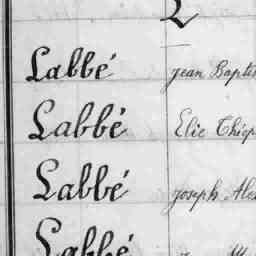 L
Labbé jean Baptis
Labbé Elie Thiop
Labbé joseph Ale
Labbé